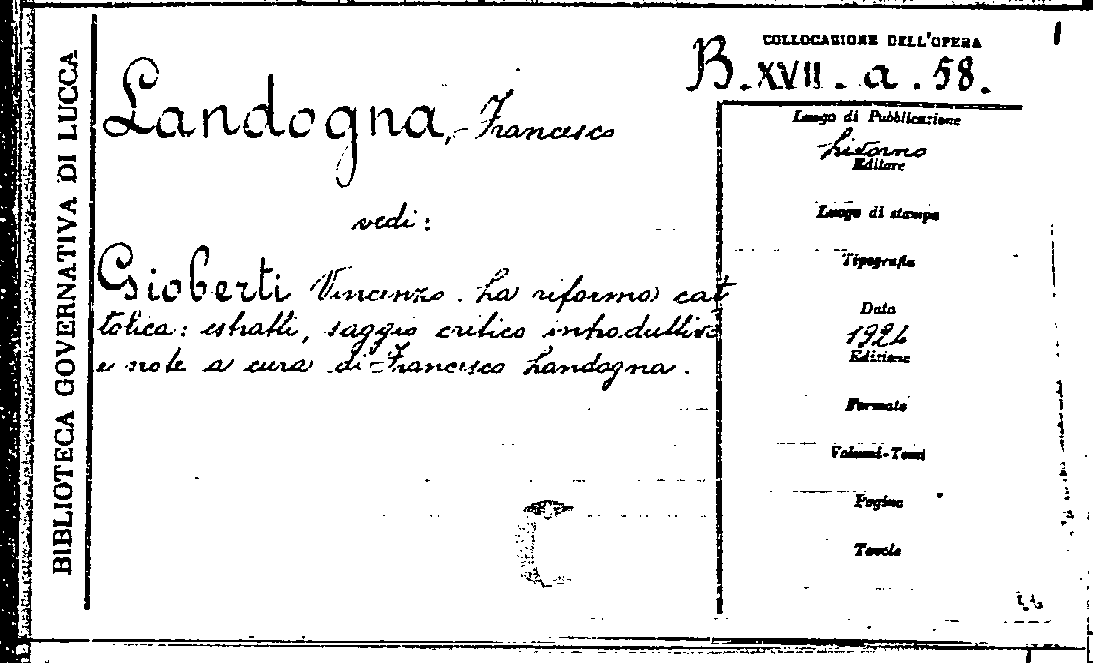 BIBLIOTECA GOVERNATIVA DI LUCCA
COLLOCAZIONE DELL'OPERA
B. XVII - a . 58.
Landogna, Francesco
vedi:
Gioberti Vincenzo. La riforma cat
tolica: estratti, saggio critico introduttivo
e note a cura di Francesco Landogna.
Luogo di Pubblicazione
Livorno
Editore
Luogo di stampa
Tipografia
Data
Edizione
Formato
Volumi-Tomi
Pagine
Tavole